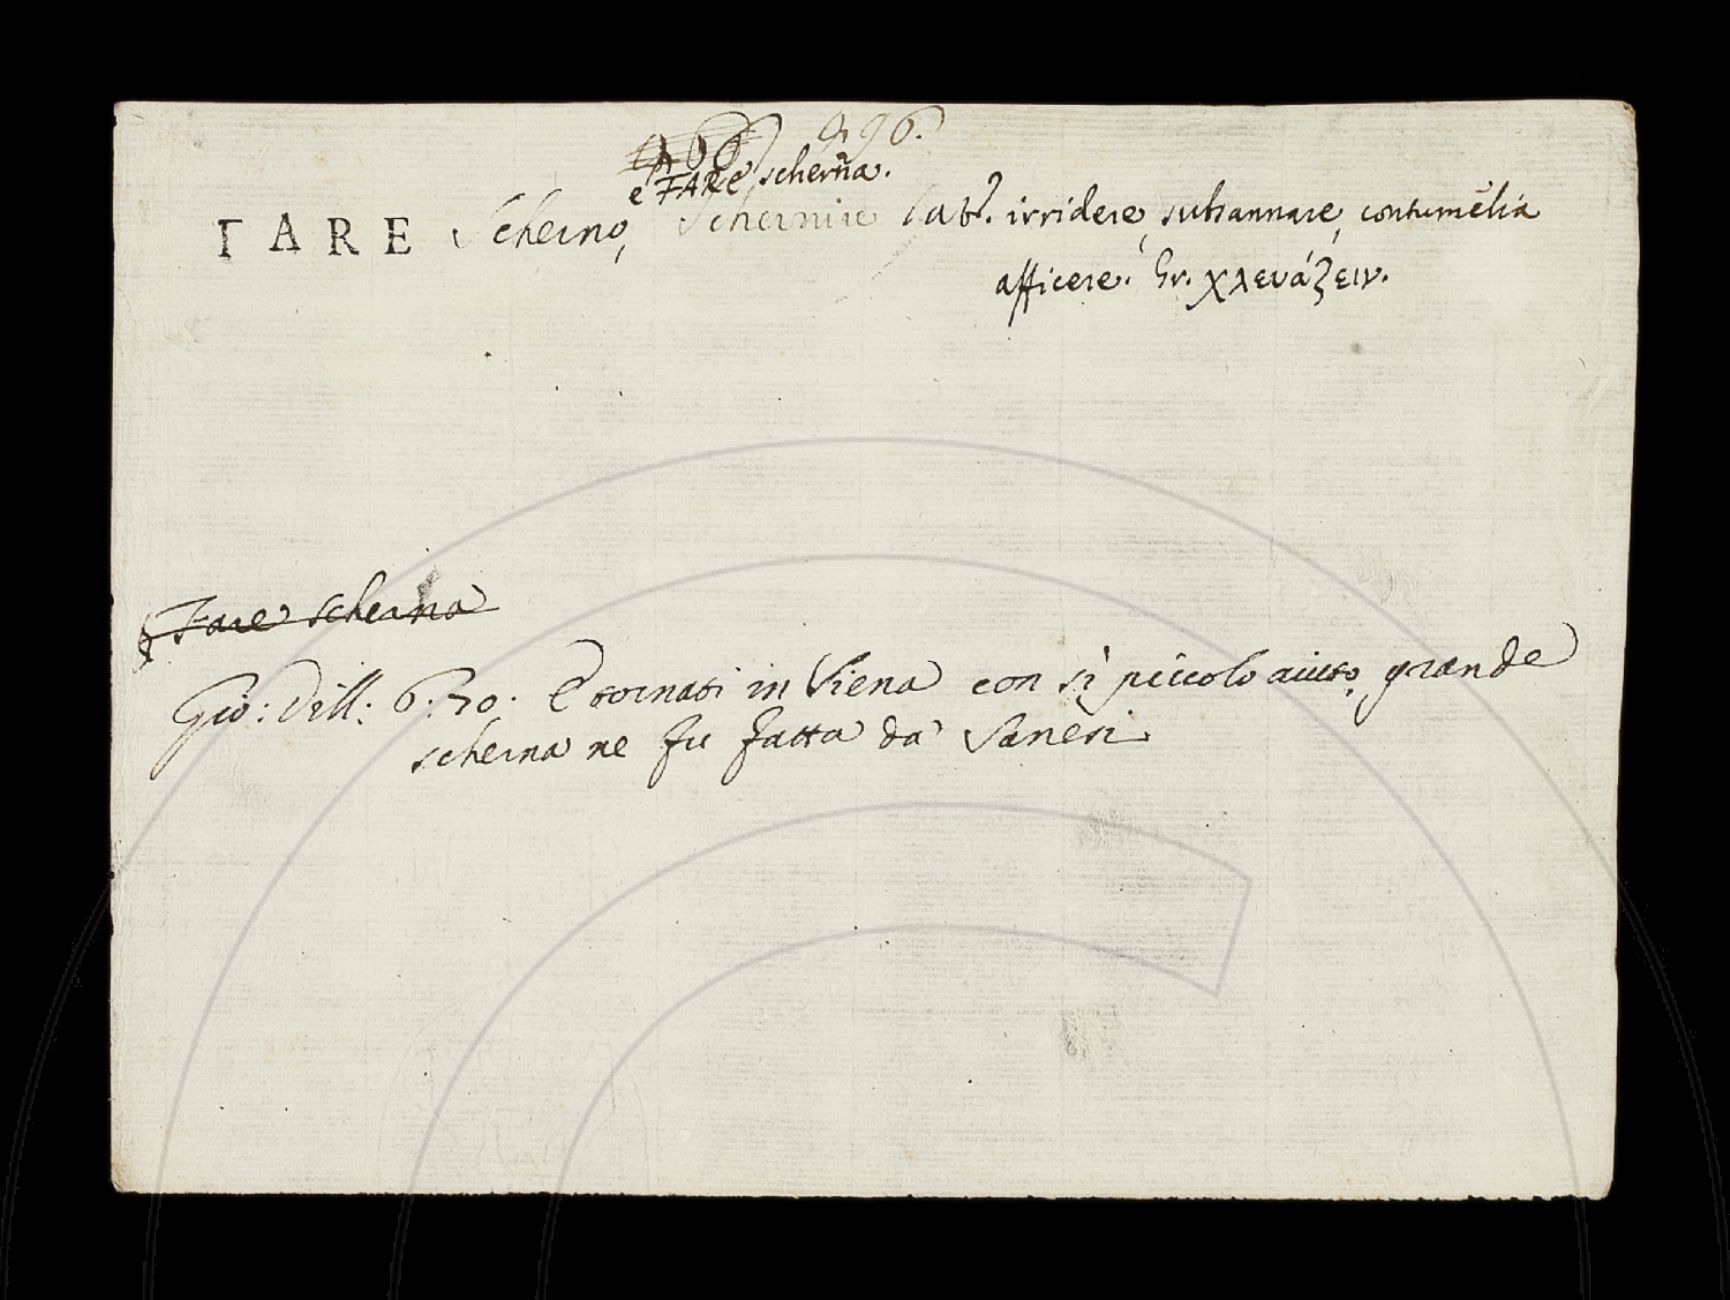 996.
e FARE scherna.
FARE Scherno, Schernire Lat. irridere, subsannare, contumelia
afficere. Gr. χλευάζειν.
Fare scherna
Gio: Vill: 6. 70. E tornati in Siena con sì piccolo aiuto, grande
scherna ne fu fatta da' Sanesi